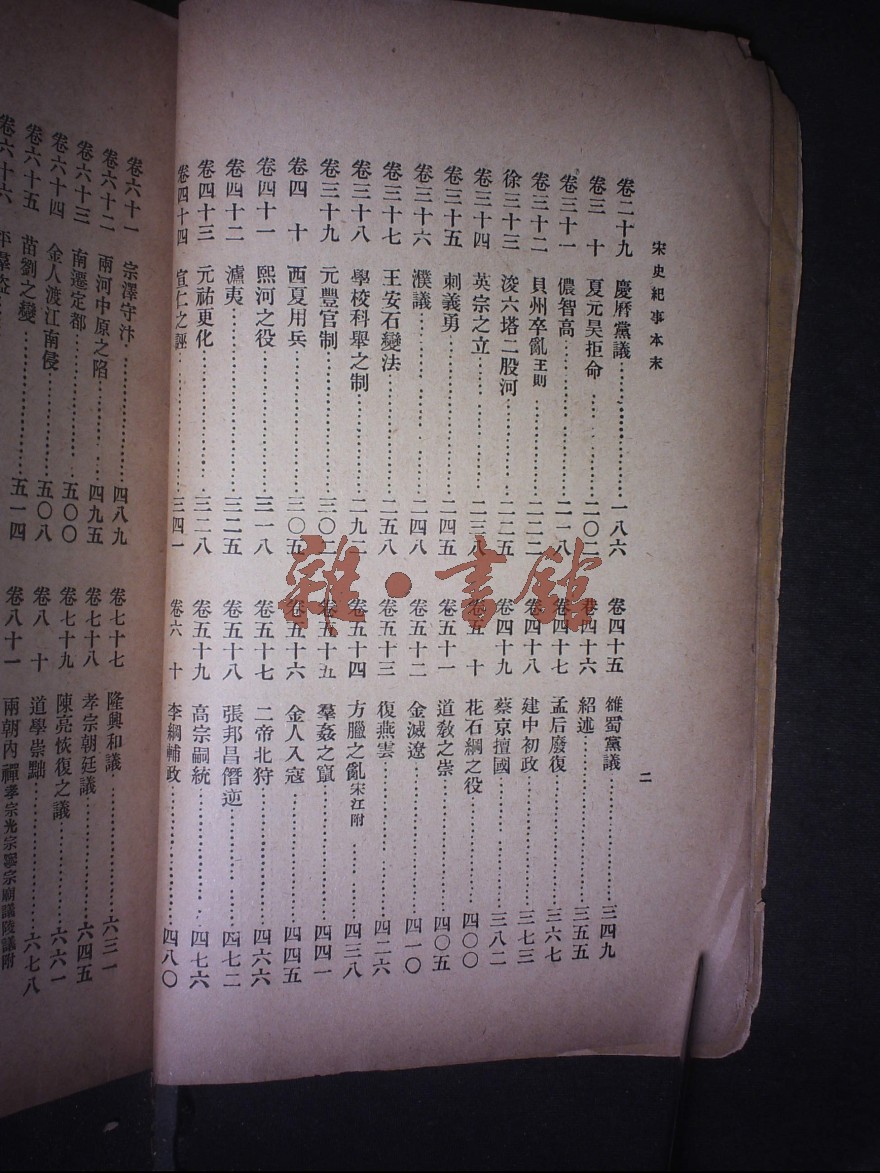 宋史紀事本末
卷二十九　慶曆黨議……一八六
卷三十　夏元昊拒命……二〇二
卷三十一　儂智高……二一八
卷三十二　貝州卒亂王則……二二二
徐三十三　浚六塔二股河……二二五
卷三十四　英宗之立……二三八
卷三十五　刺義勇……二四五
卷三十六　濮議……二四八
卷三十七　王安石變法……二五八
卷三十八　學校科舉之制……二九二
卷三十九　元豐官制……三〇二
卷四十　西夏用兵……三〇五
卷四十一　熙河之役……三一八
卷四十二　瀘夷……三二五
卷四十三　元祐更化……三二八
卷四十四　宣仁之誣……三四一
卷四十五　雒蜀黨議……三四九
卷四十六　紹述……三五五
卷四十七　孟后廢復……三六七
卷四十八　建中初政……三七三
卷四十九　蔡京擅國……三八二
卷五十　花石綱之役……四〇〇
卷五十一　道教之崇……四〇五
卷五十二　金滅遼……四一〇
卷五十三　復燕雲……四二六
卷五十四　方臘之亂宋江附……四三八
卷五十五　羣姦之竄……四四一
卷五十六　金人入寇……四四五
卷五十七　二帝北狩……四六六
卷五十八　張邦昌僭逆……四七二
卷五十九　高宗嗣統……四七六
卷六十　李綱輔政……四八〇
二
卷六十一　宗澤守汴……四八九
卷六十二　兩河中原之陷……四九五
卷六十三　南遷定都……五〇〇
卷六十四　金人渡江南侵……五〇八
卷六十五　苗劉之變……五一四
卷六十六　平羣盜
卷七十七　隆興和議……六三一
卷七十八　孝宗朝廷議……六四五
卷七十九　陳亮恢復之議……六六一
卷八十　道學崇黜……六七八
卷八十一　兩朝內禪孝宗光宗寧宗廟議陵議附
雜·書館